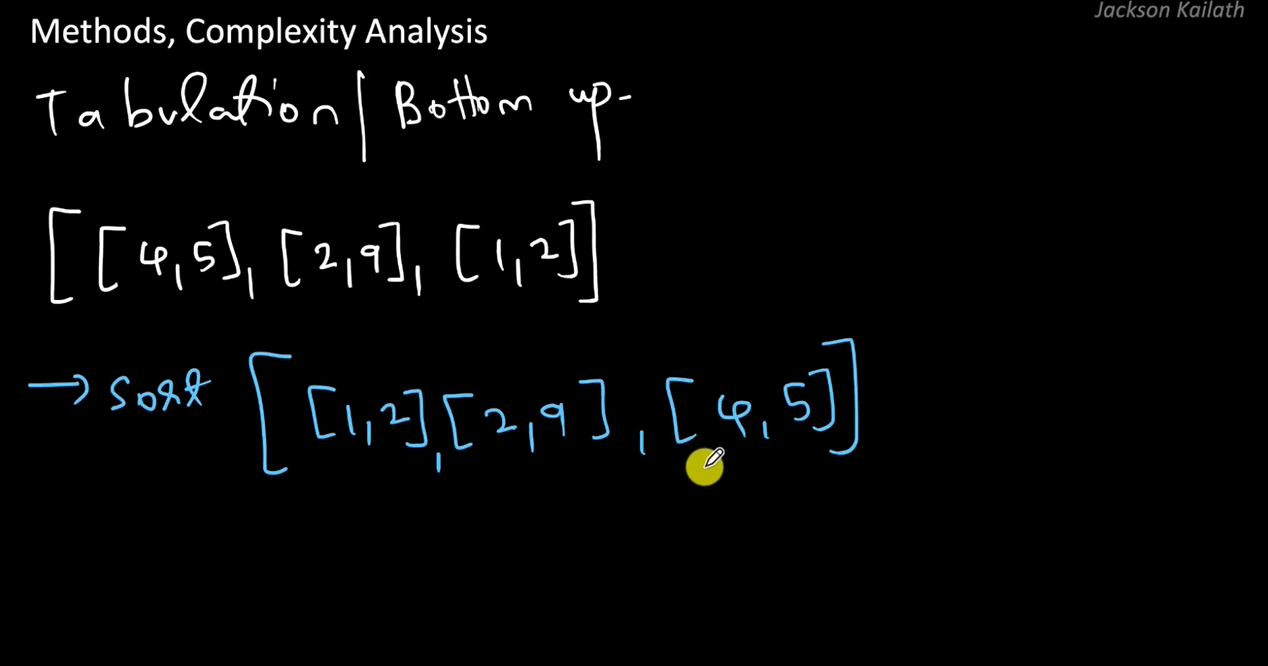 Jackson Kailath
Methods, Complexity Analysis
Tabulation | Bottom up-
[[4,5], [2,9], [1,2]]
→ sort [[1,2], [2,9], [4,5]]